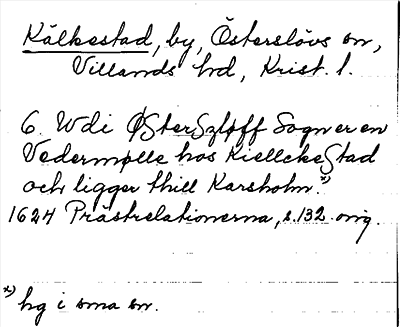 Kälkestad, by, Österslövs sn,
Villands hd, Krist. l.
6. Wdi ØSterSzløff Sogn er en
Vedermølle hos KiellckeStad
och ligger thill Karsholm.*)
1624 Prästrelationerna, s. 132. orig.
*) hg i sma sn.